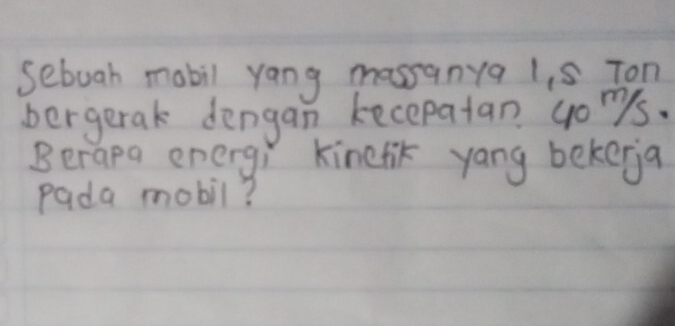 Sebuah mobil yang massanya 1,5 Ton
bergerak dengan kecepatan 40 m/s.
Berapa energi kinetik yang bekerja
pada mobil?